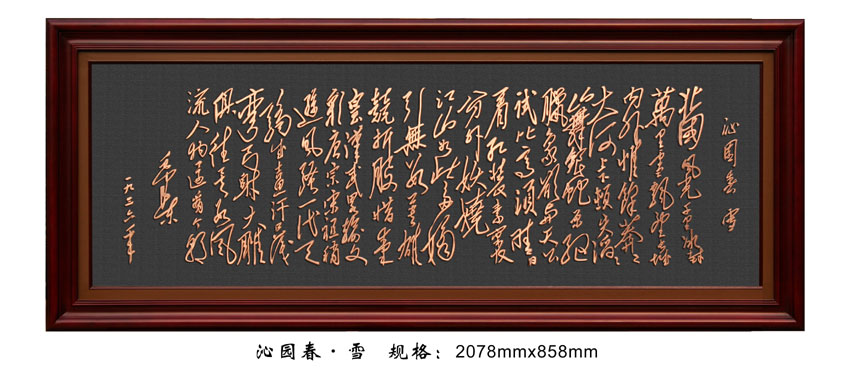 沁园春 雪
北国风光千里冰封
萬里雪飘望长城
内外惟馀莽莽
大河上下顿失滔滔
山舞银蛇原驰
臘象欲与天公
试比高须晴日
看红装素裹
分外妖娆
江山如此多娇
引無数英雄
竞折腰惜秦
皇漢武略输文
彩唐宗宋祖稍
逊风骚一代天
骄成吉思汗只识
弯弓射大雕
俱往矣数风
流人物还看今朝
毛泽东
一九三六年
沁园春·雪 规格：2078mmx858mm